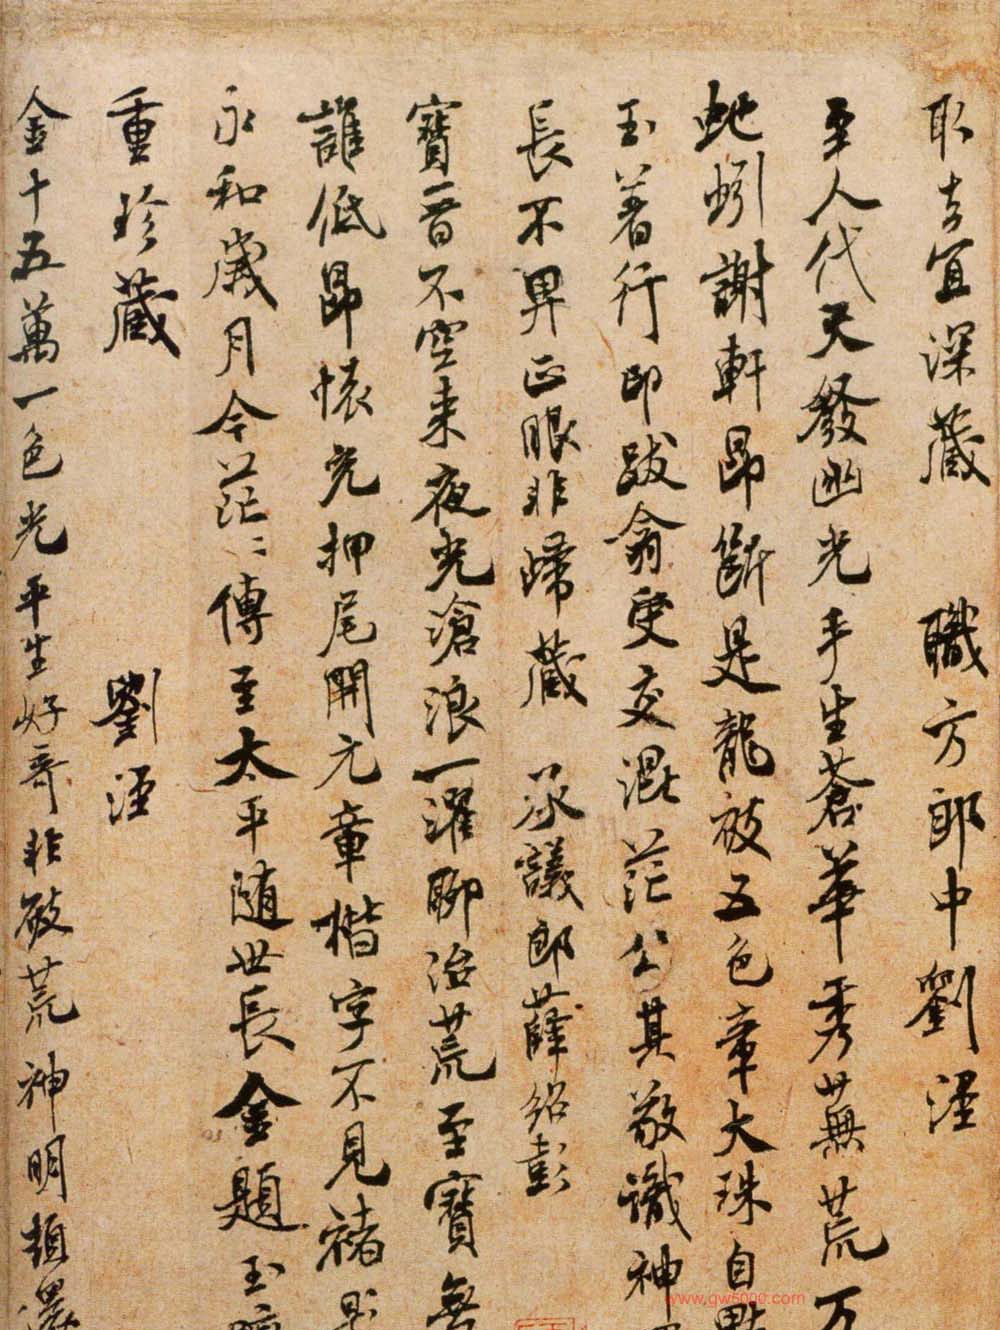 耶 宜深藏 職方郎中劉涇
至人代天發幽光手生蒼華秀蕪荒万
虵蚓謝軒昂斷是龍被五色章大珠自點
玉著行印跋翕更交混茫公其敬識神
長不畀正眼非歸藏 承議郎薛紹彭
寶晉不空来夜光滄浪一濯聊治荒至寶無
誰低昂懷充押尾開元章楷字不見褚
永和歲月今茫〻傳至太平隨世長金題玉
重珍藏 劉涇
金十五萬一色光平生好奇非破荒神明頓還
www.gw6000.com